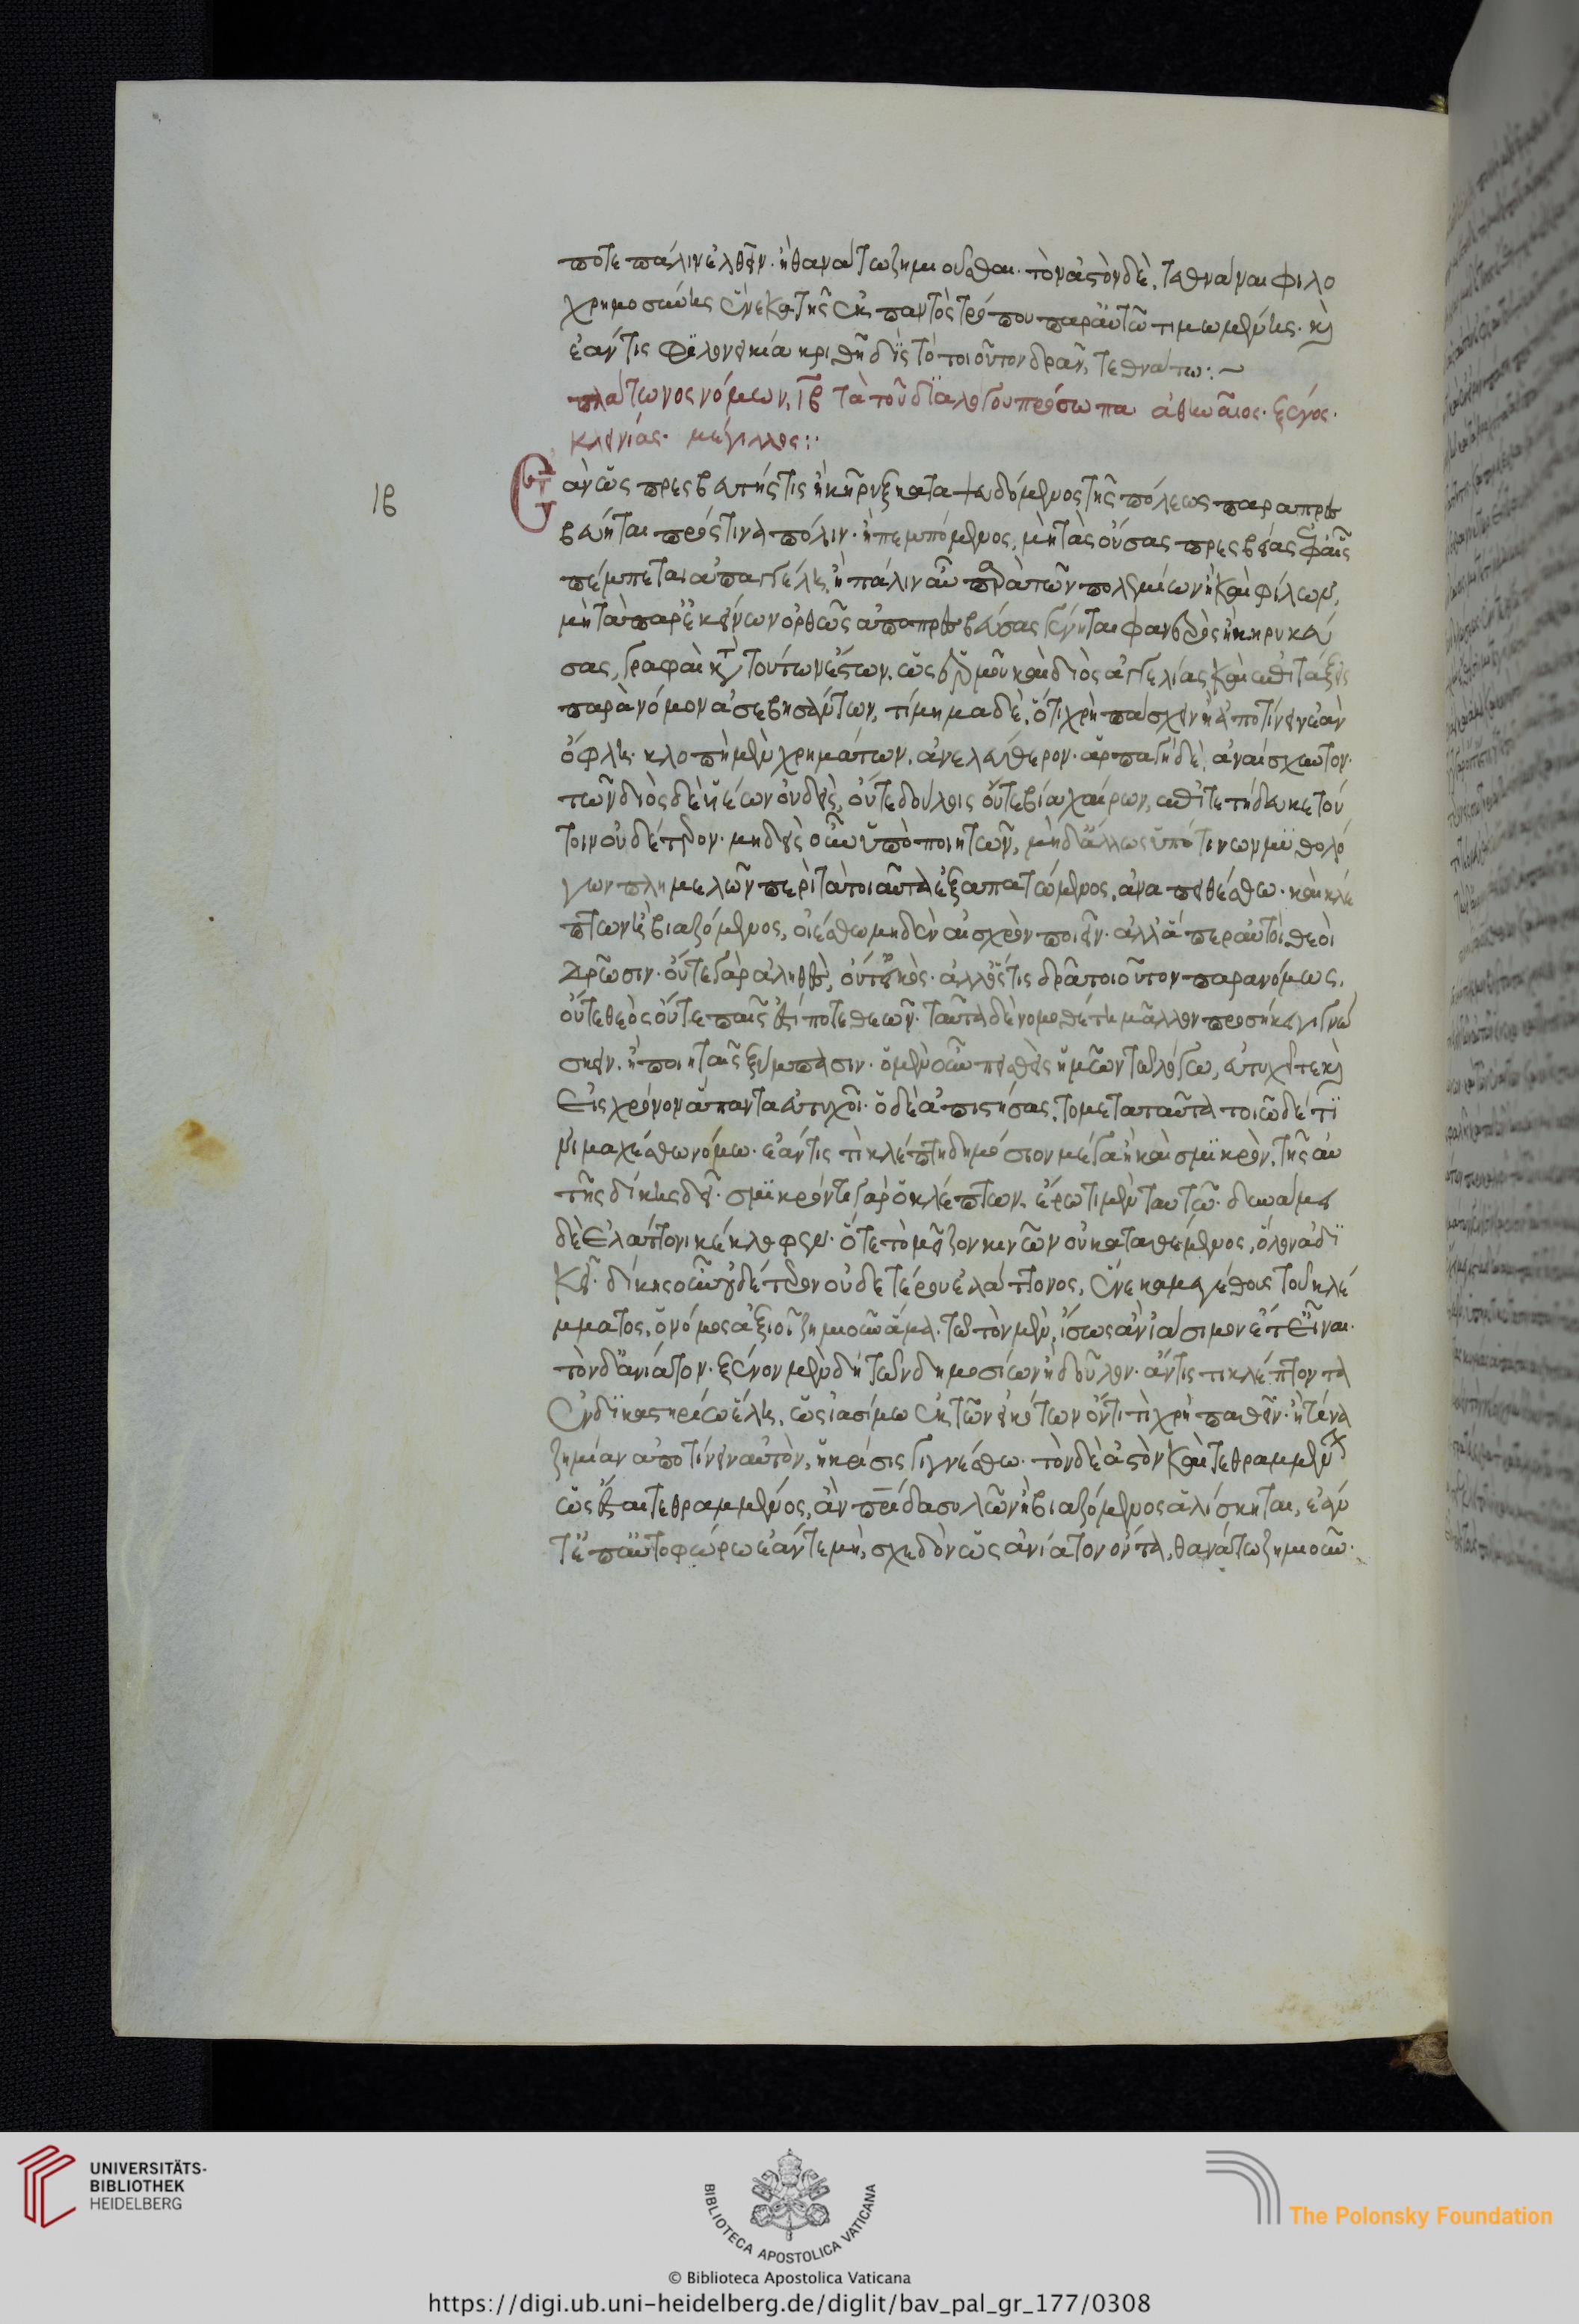 ποτε πάλιν ἐλθεῖν· ἢ θανάτω ζημιοῦσθαι· τὸν ἀστὸν δὲ, τεθνάναι φιλο
χρημοσύνης ἕνεκα τῆς ἐκ παντὸς τρόπου παρ' αὐτῶ τιμωμένης· καὶ
ἐάν τις φιλονεικία κριθῆ δὶς τὸ τοιοῦτον δρᾶν, τεθνάτω:~
πλάτωνος νόμων, ιβ τὰ τοῦ διαλόγου πρόσωπα ἀθηναῖος· ξένος·
κλεινίας· μέγιλλος:·
ιβ
Ἐὰν ὡς πρεσβευτής τις ἢ κῆρυξ καταψευδόμενος τῆς πόλεως παραπρεσ
βεύηται πρός τινα πόλιν· ἢ πεμπόμενος, μὴ τὰς οὔσας πρεσβείας ἐφ' αἷς
πέμπεται ἀπαγγέλλη, ἢ πάλιν αὖ παρὰ τῶν πολεμίων ἢ καὶ φίλων,
μὴ τὰ παρ' ἐκείνων ὀρθῶς ἀποπρεσβεύσας γένηται φανερὸς ἢ κηρυκεύ
σας, γραφαὶ κατὰ τούτων ἔστων, ὡς ἑρμοῦ καὶ διὸς ἀγγελίας καὶ ἐπιτάξεις
παρὰ νόμον ἀσεβησάντων, τίμημα δὲ, ὅτι χρὴ πάσχειν ἢ ἀποτίνειν ἐὰν
ὄφλη· κλοπὴ μὲν χρημάτων, ἀνελεύθερον· ἁρπαγὴ δὲ, ἀναίσχυντον·
τῶν διὸς δὲ ὑέων οὐδεὶς, οὔτε δόλοις οὔτε βία χαίρων, ἐπιτετήδευκε τού
τοιν οὐδέτερον· μηδεὶς οὖν ὑπὸ ποιητῶν, μηδ' ἄλλως ὑπό τινων μυθολό
γων πλημμελῶν περὶ τὰ τοιαῦτα ἐξαπατώμενος, ἀναπειθέσθω· καὶ κλέ
πτων ἢ βιαζόμενος, οἰέσθω μηδὲν αἰσχρὸν ποιεῖν· ἀλλ' ἅπερ αὐτοὶ θεοὶ
δρῶσιν· οὔτε γὰρ ἀληθὲς, οὔτ' εἰκὸς· ἀλλ' ὅστις δρᾶ τοιοῦτον παρανόμως,
οὔτε θεὸς οὔτε παῖς ἐστί ποτε θεῶν· ταῦτα δὲ νομοθέτη μᾶλλον προσήκει γιγνώ
σκειν, ἢ ποιηταῖς ξύμπασιν· ὁ μὲν οὖν πεισθεὶς ἡμῶν τῶ λόγω, εὐτυχεῖ τε καὶ
εἰς χρόνον ἅπαντα εὐτυχοῖ· ὁ δὲ ἀπιστήσας, τὸ μετὰ ταῦτα τοιῶδέ τι
νι μαχέσθω νόμω· ἐάν τις τὶ κλέπτη δημόσιον μέγα ἢ καὶ σμικρὸν, τῆς αὐ
τῆς δίκης δεῖ· σμικρόν τε γὰρ ὁ κλέπτων, ἔρωτι μὲν ταυτῶ· δυνάμει
δὲ ἐλάττονι κέκλοφεν· ὅ τε τὸ μεῖζον κινῶν οὐ καταθέμενος, ὅλον ἀδι
κεῖ· δίκης οὖν οὐδέτερον οὐδετέρου ἐλάττονος, ἕνεκα μεγέθους τοῦ κλέ
μματος, ὁ νόμος ἀξιοῖ ζημιοῦν ἅμα· τῶ τὸν μὲν, ἴσως ἂν ἰάσιμον ἔτ' εἶναι·
τὸν δ' ἀνίατον· ξένον μὲν δὴ τῶν δημοσίων ἢ δοῦλον· ἄν τις τὶ κλέπτοντα
ἐν δικαστηρίω ἕλη, ὡς ἰασίμω ἐκ τῶν εἰκότων ὄντι τὶ χρὴ παθεῖν· ἢ τίνα
ζημίαν ἀποτίνειν αὐτὸν, ἡ κρίσις γιγνέσθω· τὸν δὲ ἀστὸν καὶ τεθραμμένον
ὡς ἔσται τεθραμμένος, ἂν πρίδα συλῶν ἢ βιαζόμενος ἁλίσκηται, ἐάν
τ' ἐπ' αὐτοφώρω ἐάν τε μὴ, σχεδὸν ὡς ἀνίατον ὄντα, θανάτω ζημιοῦν·
UNIVERSITÄTS-
BIBLIOTHEK
HEIDELBERG
BIBLIOTECA APOSTOLICA VATICANA
The Polonsky Foundation
© Biblioteca Apostolica Vaticana
https://digi.ub.uni-heidelberg.de/diglit/bav_pal_gr_177/0308